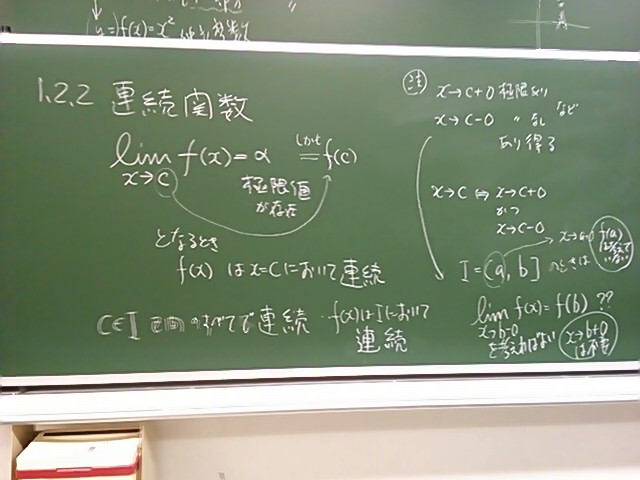 (y=)f(x)=x²
1.2.2 連続関数
lim f(x)=α しかも = f(c)
x→c
極限値
が存在
となるとき
f(x) は x=c において連続
c∈I のすべてで連続・f(x)は I において
連続
注 x→c+0 極限あり
x→c-0 〃 なし など
あり得る
x→c ⇔ x→c+0
かつ
x→c-0
I=(a, b] のときは
f(a)
lim f(x)=f(b) ??
x→b-0
を考えればよい
x→b+0
は不要